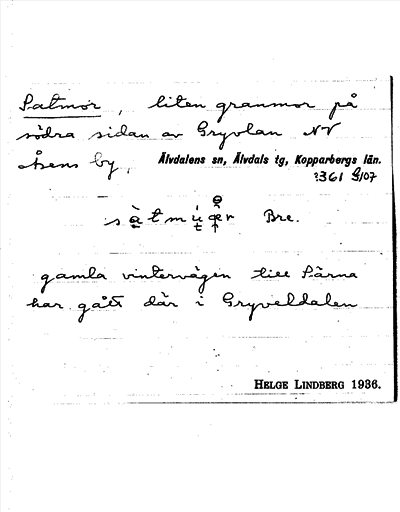 Satmor, liten granmor på
södra sidan av Gryvlan NV
Åsens by, Älvdalens sn, Älvdals tg, Kopparbergs län.
361 G/07
Bre.
gamla vintervägen till Särna
har gått där i Gryveldalen
HELGE LINDBERG 1936.